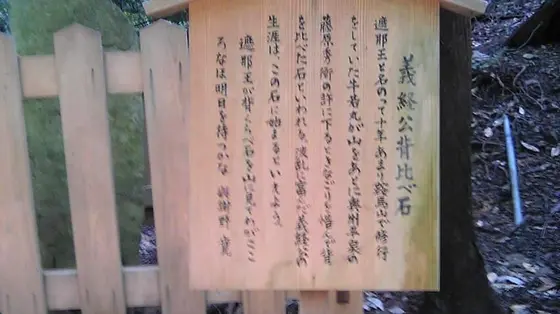 義経公背比べ石
遮那王と名のって十年あまり鞍馬山で修行
をしていた牛若丸が山をあとに奥州平泉の
藤原秀衡の許に下るときなごりを惜んで背
を比べた石といわれる。波乱に富んだ義経公の
生涯は、この石に始まるといえよう。
遮那王が背くらべ石を山に見てわがこころ
なほ明日を待つかな 與謝野 寛